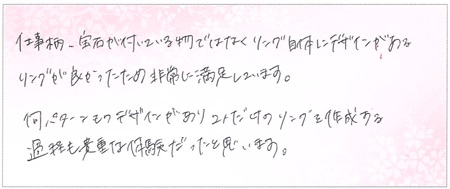 仕事柄、宝石が付いている物ではなくリング自体にデザインがある
リングが良かったため非常に満足しています。
何パターンものデザインがあり2人だけのリングを作成する
過程も貴重な体験だったと思います。